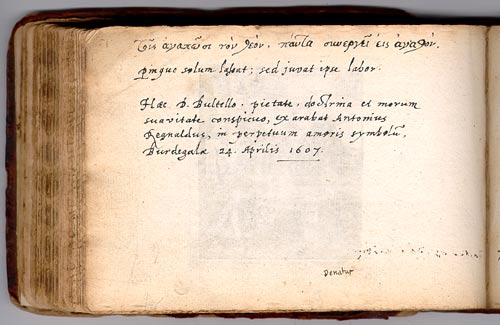 Τοῖς ἀγαπῶσι τὸν θεὸν, πάντα συνεργεῖ εἰς ἀγαθόν.
pingue solum lassat; sed juvat ipse labor.
Hæc D. Bultello, pietate, doctrina et morum
suavitate conspicuo, exarabat Antonius
Regnaldus, in perpetuum amoris symbolũ,
Burdegalæ 24. Aprilis 1607.
Denatus